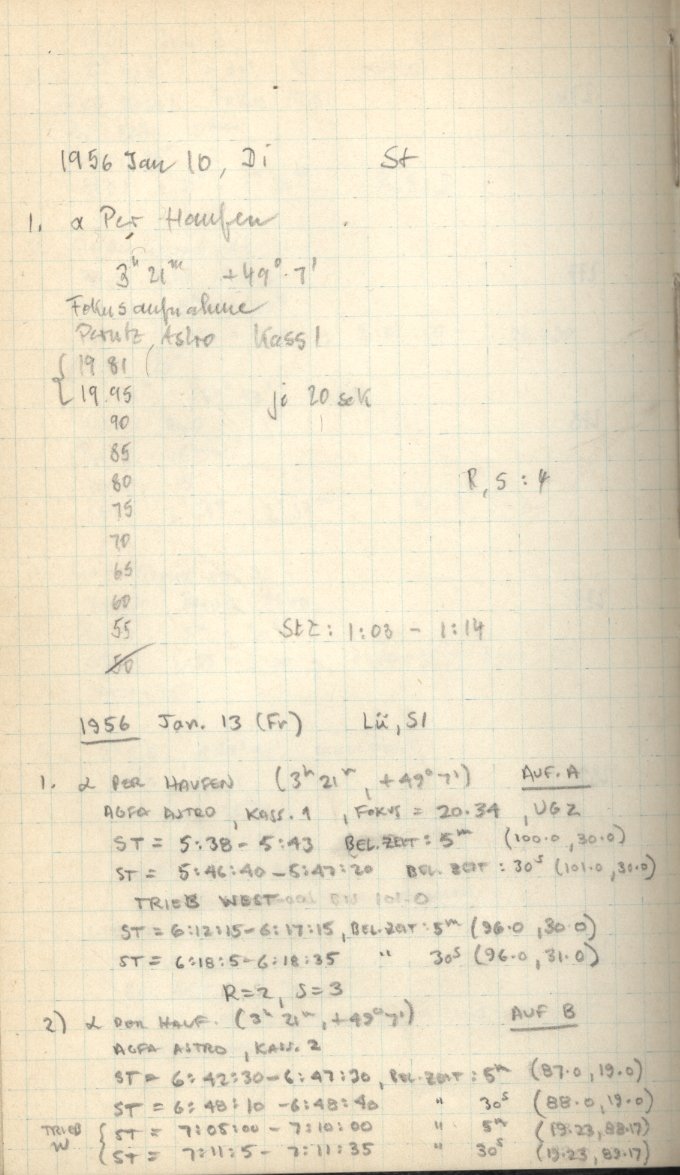 1956 Jan 10, Di St
1. α Per Haufen
3h 21m +49°.7'
Fokusaufnahme
Perutz Astro Kass 1
{ 19 81 (
{ 19.95 je 20 sek
90
85
80 R, S : 4
75
70
65
60
55 StZ: 1:03 - 1:14
50
1956 Jan. 13 (Fr) Lü, Sl
1. α PER HAUFEN (3h 21m, +49°7') AUF. A
AGFA ASTRO, KASS. 1, FOKUS = 20.34, UG2
ST = 5:38 - 5:43 BEL.ZEIT: 5m (100.0, 30.0)
ST = 5:46:40 - 5:47:20 BEL. ZEIT: 30s (101.0, 30.0)
TRIEB WEST 101.0
ST = 6:12:15 - 6:17:15, BEL.ZEIT: 5m (96.0, 30.0)
ST = 6:18:5 - 6:18:35 " 30s (96.0, 31.0)
R=2, S=3
2) α PER HAUF. (3h 21m, +49°7') AUF B
AGFA ASTRO, KASS. 2
ST = 6:42:30 - 6:47:30, BEL.ZEIT: 5m (87.0, 19.0)
ST = 6:48:10 - 6:48:40 " 30s (88.0, 19.0)
TRIEB W { ST = 7:05:00 - 7:10:00 " 5m (19.23, 88.17)
{ ST = 7:11:5 - 7:11:35 " 30s (19.23, 89.17)